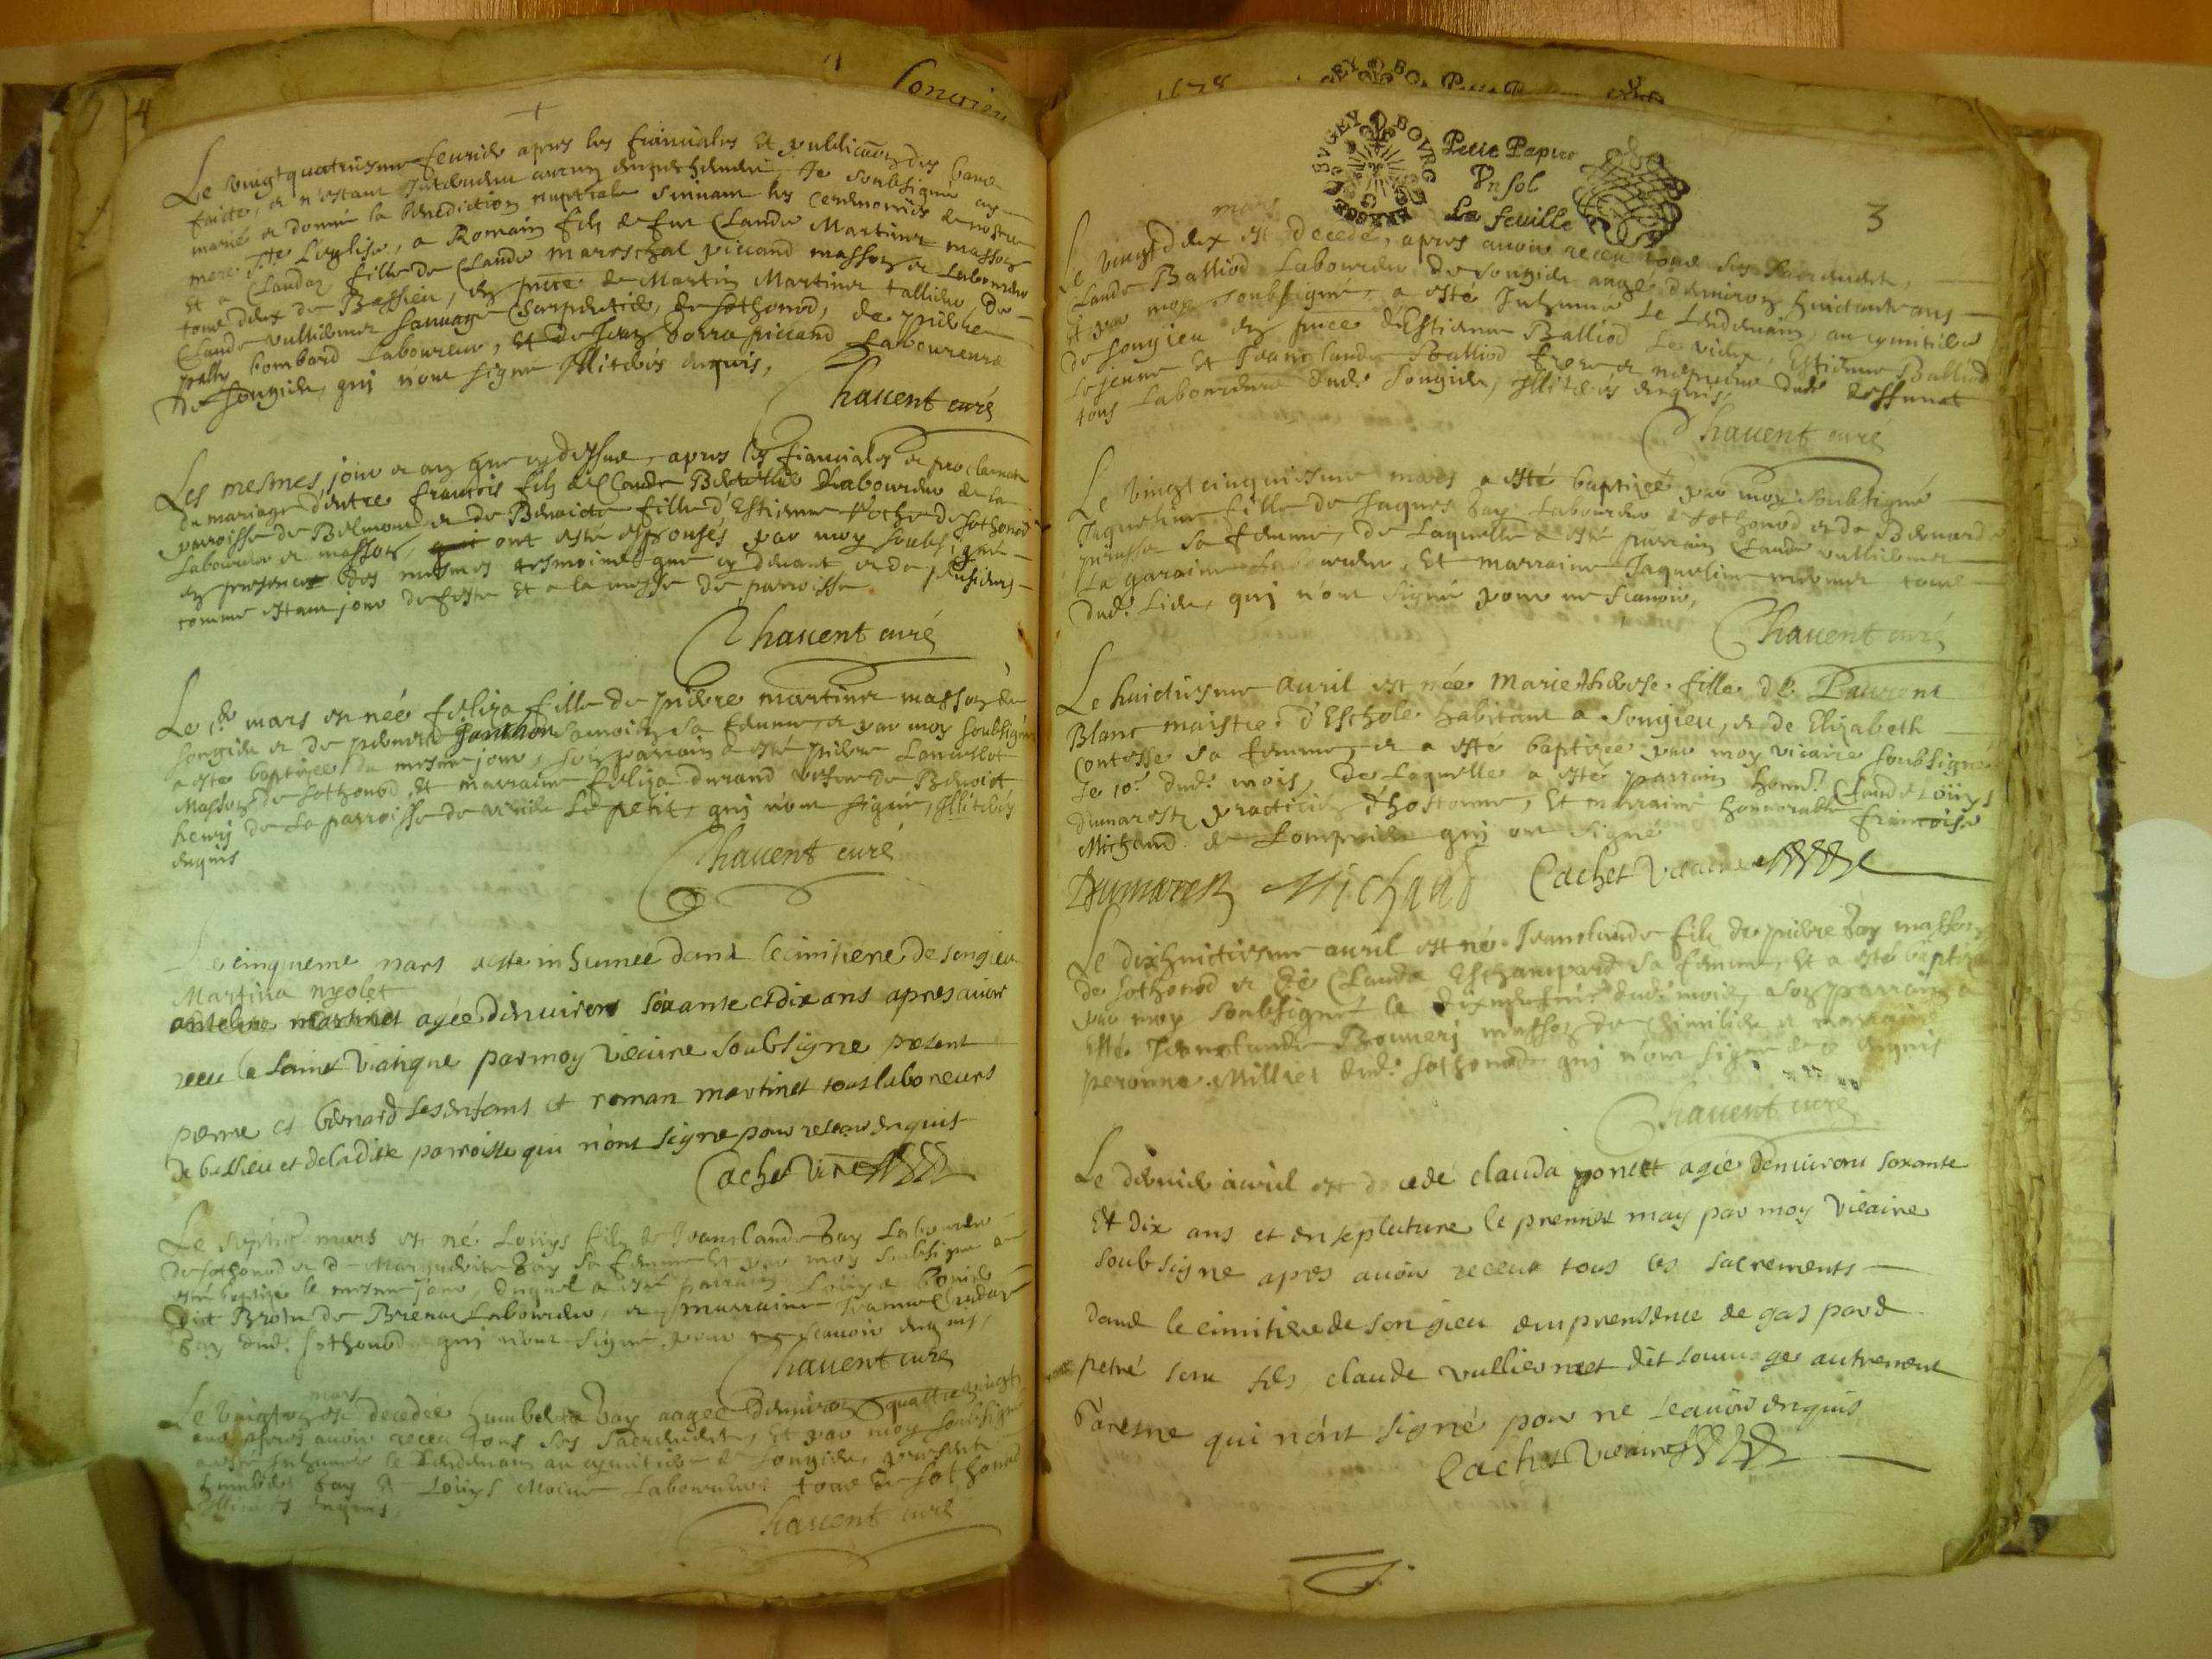 4
Songieu
Le vingtquatriesme feurier apres les fiancailles et publicaon des bans
faitte, et n'estant Interuenu aucun empeschement, Je soubsigné ay
marié et donné la benediction nuptiale suiuant les ceremonies de nostre
mere ste L'eglise, a Romain fils de feu Claude Martinet masson
et a Claudaz fille de Claude Mareschal piccand masson et Laboureur
tous deux de Bassieu, en pnce de Martin Martinet tallieur, de
Claude vulliermet sauuage Charpentier, de sothonod, de pierre
bombard Laboureur, et de Jean borra piccand Laboureurs
de songieu, qui n'ont signé Illiterés enquis,
Chauent curé
Les mesmes jour et an que cy dessus, apres les fiancailles et proclamaon
du mariage d'entre francois fils de Claude Laboureur de la
parroisse de Belmont et de Benoicte fille d'Estienne de sothonod
Laboureur et masson, ont esté espousés par moy soubsigné
en presence des mesmes tesmoins que cy deuant, et de plusieurs
comme estant jour de feste et a la messe de parroisse
Chauent curé
Le mars est née feliza fille de pierre martinet masson de
songieu et de pierna sa femme, et par moy soubsigné
a esté baptizée du mesme jour, son parrain a esté pierre Lancellot
Masson de sothonod, et marraine feliza durand vefue de Benoict
henry de la parroisse de virieu Le petit, qui n'ont signé, Illiterés
enquis
Chauent curé
Le cinquieme mars a esté inhumée dans le cimitiere de songieu
Martina nyolet
agée denuirons soixante et dix ans apres auoir
receu le saint viatique par moy vicaire soubsigne present
pierre et benard ses enfans et roman martinet tous laboureurs
de bassieu et de ladite parroisse qui n'ont signe pour ne scauoir enquis
Cachet vire
Le septie mars est né Louys fils de Jeanclaude Bay Laboureur
de sothonod et de Marguerite Bay sa femme et par moy soubsigné a
esté baptizé le mesme jour, duquel a esté parrain Louys
dit Brotu de Brenaz Laboureur, et marraine Jeanne
Bay dud. sothonod qui n'ont signé pour ne scauoir enquis,
Chauent curé
mars
Le vingt est decedée humberta Bay aagée denuiron quattre vingts
ans apres auoir receu tous ses sacrements, et par moy soubsigné
a esté Inhumée le Lendemain au cymitiere de songieu, presents
humbert Bay et Louys Moine Laboureurs tous de sothonod
Illiterés enquis,
Chauent curé
1678
BVGEY BOVRG BRESSE
Petit Papier
Vn sol
La feuille
3
mars
Le vingtdeux est decedé, apres auoir receu tous ses sacrements,
Claude Balliod Laboureur de songieu aagé denuiron huictante ans
et par moy soubsigné, a esté Inhumé le Lendemain, au cymitiere
de songieu en pnce d'Estienne Balliod le vieux, Estienne Balliod
le jeune et Jeanclaude Balliod frere et nepueux dud. deffunct
tous Laboureurs dud. songieu, Illiterés enquis,
Chauent curé
Le vingtcinquiesme mars a esté baptizée par moy soubsigné
Jaqueline fille de Jaques Bay Laboureur de sothonod et de Bernarde
sa femme, de Laquelle a esté parrain Claude vulliermet
La garaine Laboureur, et marraine Jaqueline tous
dud. Lieu, qui n'ont signé pour ne scauoir,
Chauent curé
Le huictiesme Auril est née Marie therese fille de Laurent
Blanc maistre d'Eschole habitant a songieu, et de Elizabeth
Contesse sa femme, et a esté baptizée par moy vicaire soubsigné
Le 10e dud. mois, de Laquelle a esté parrain honn. Claude Louys
dumarest practicien d'hostonne, et marraine honnorable francoise
Michaud de Lompnieu qui ont signé
Dumarest Michaud Cachet Vicaire
Le dixhuictiesme auril est né Jeanclaude fils de pierre Bay masson
de sothonod et de Clauda Eschampard sa femme, et a esté baptizé
par moy soubsigné le dud. mois, son parrain a
esté Jeanclaude masson de et marraine
peronne Milliet dud. sothonod qui n'ont signé de ce enquis
Chauent curé
Le dernier auril est decedé clauda ponet agée denuirons soixante
Et dix ans et ensepluture le premier may par moy vicaire
soubsigne apres auoir receux tous les sacrements
dans le cimitiere de songieu en presence de gaspard
petré son fils claude vulliermet dit sauuage autrement
qui n'ont signé pour ne scauoir enquis
Cachet Vicaire